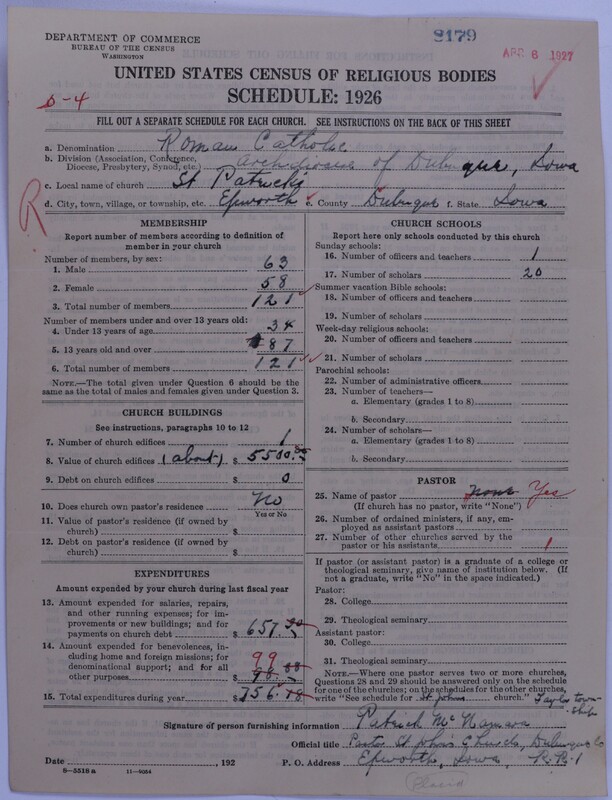 8179
DEPARTMENT OF COMMERCE
BUREAU OF THE CENSUS
WASHINGTON
APR 6 1927
UNITED STATES CENSUS OF RELIGIOUS BODIES
SCHEDULE: 1926
0-4
FILL OUT A SEPARATE SCHEDULE FOR EACH CHURCH. SEE INSTRUCTIONS ON THE BACK OF THIS SHEET
a. Denomination Roman Catholic
b. Division (Association, Conference, Diocese, Presbytery, Synod, etc.) Archdiocese of Dubuque, Iowa
c. Local name of church St Patricks
d. City, town, village, or township, etc. Epworth e. County Dubuque f. State Iowa
R
MEMBERSHIP
Report number of members according to definition of
member in your church
Number of members, by sex:
1. Male 63
2. Female 58
3. Total number of members 121
Number of members under and over 13 years old:
4. Under 13 years of age 34
5. 13 years old and over 87
6. Total number of members 121
NOTE.—The total given under Question 6 should be the
same as the total of males and females given under Question 3.
CHURCH BUILDINGS
See instructions, paragraphs 10 to 12
7. Number of church edifices 1
8. Value of church edifices (about) $ 5500.00
9. Debt on church edifices $ 0
10. Does church own pastor's residence No
Yes or No
11. Value of pastor's residence (if owned by
church) $
12. Debt on pastor's residence (if owned by
church) $
EXPENDITURES
Amount expended by your church during last fiscal year
13. Amount expended for salaries, repairs,
and other running expenses; for im-
provements or new buildings; and for
payments on church debt $ 657.
14. Amount expended for benevolences,
including home and foreign missions; for
denominational support; and for all
other purposes $ 98.88
99
15. Total expenditures during year $ 756.18
CHURCH SCHOOLS
Report here only schools conducted by this church
Sunday schools:
16. Number of officers and teachers 1
17. Number of scholars 20
Summer vacation Bible schools:
18. Number of officers and teachers
19. Number of scholars
Week-day religious schools:
20. Number of officers and teachers
21. Number of scholars
Parochial schools:
22. Number of administrative officers
23. Number of teachers—
a. Elementary (grades 1 to 8)
b. Secondary
24. Number of scholars—
a. Elementary (grades 1 to 8)
b. Secondary
PASTOR
25. Name of pastor None Yes
(If church has no pastor, write "None")
26. Number of ordained ministers, if any, em-
ployed as assistant pastors
27. Number of other churches served by the
pastor or his assistants 1
If pastor (or assistant pastor) is a graduate of a college or
theological seminary, give name of institution below. (If
not a graduate, write "No" in the space indicated.)
Pastor:
28. College
29. Theological seminary
Assistant pastor:
30. College
31. Theological seminary
NOTE.—Where one pastor serves two or more churches,
Questions 28 and 29 should be answered only on the schedule
for one of the churches; on the schedules for the other churches,
write "See schedule for St Johns church." Taylor town-
ship
Signature of person furnishing information Patrick McNamara
Official title Pastor St John's Church, Dubuque Co
Date 192 P. O. Address Epworth, Iowa, R.R.1
8-5518a 11-9084